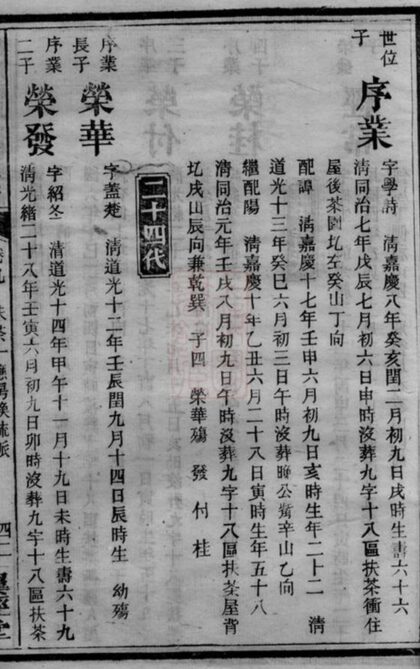 世位
子
序業
字學詩 清嘉慶八年癸亥閏二月初九日戌時生壽六十六
清同治七年戊辰七月初六日申時沒葬九字十八區扶茶衝住
屋後茶園圪坐癸山丁向
配譚 清嘉慶十七年壬申六月初九日亥時生年二十二 清
道光十三年癸巳六月初三日午時沒葬 公 辛山乙向
繼配陽 清嘉慶十年乙丑六月二十八日寅時生年五十八
清同治元年壬戌八月初九日午時沒葬九字十八區扶茶屋背
圪戌山辰向兼乾巽 子四 榮華殤 發 付 桂
二十四代
序業
長子
榮華
字蓋楚 清道光十二年壬辰閏九月十四日辰時生 幼殤
序業
二子
榮發
字紹冬 清道光十四年甲午十一月十九日未時生壽六十九
清光緒二十八年壬寅六月初九日卯時沒葬九字十八區扶茶